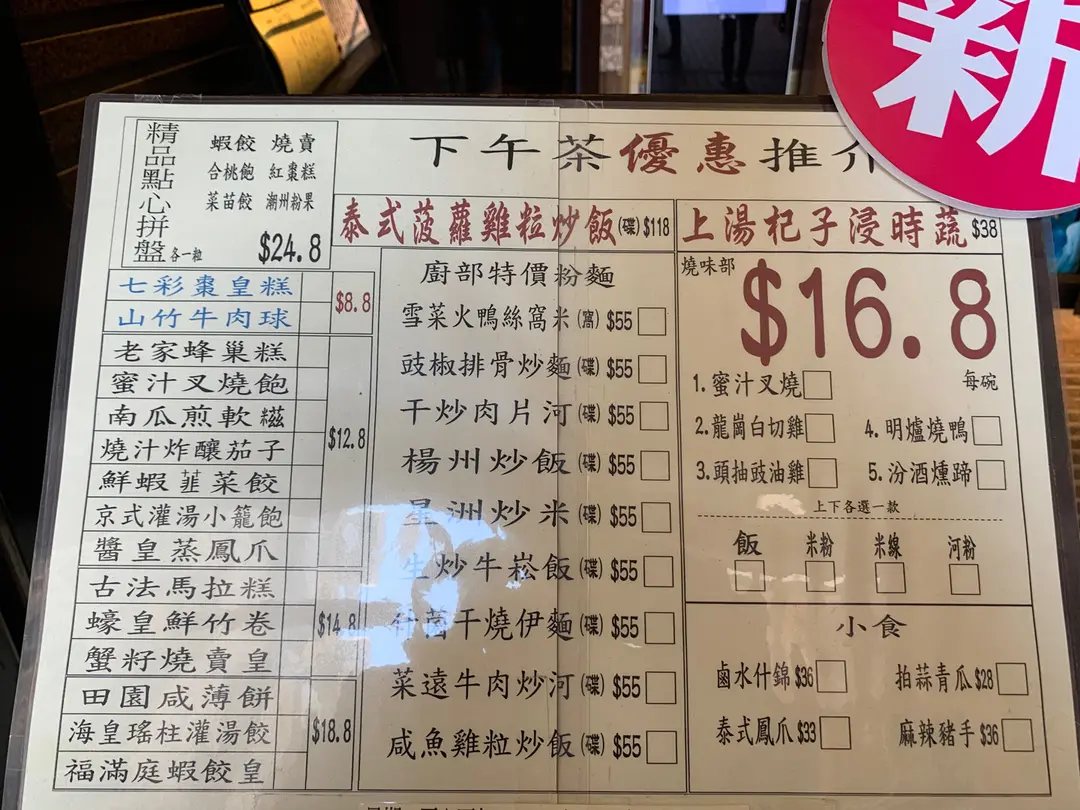 新
下午茶優惠推介
精品點心拼盤 各一粒
蝦餃 燒賣
合桃飽 紅棗糕
菜苗餃 潮州粉果
$24.8
七彩棗皇糕
山竹牛肉球
$8.8
老家蜂巢糕
蜜汁叉燒飽
南瓜煎軟糍
燒汁炸釀茄子
鮮蝦韮菜餃
京式灌湯小籠飽
醬皇蒸鳳爪
$12.8
古法馬拉糕
蠔皇鮮竹卷
蟹籽燒賣皇
$14.8
田園咸薄餅
海皇瑤柱灌湯餃
福滿庭蝦餃皇
$18.8
泰式菠蘿雞粒炒飯(碟)$118
廚部特價粉麵
雪菜火鴨絲窩米(窩) $55
豉椒排骨炒麵(碟) $55
干炒肉片河(碟) $55
楊州炒飯(碟) $55
星洲炒米(碟) $55
生炒牛崧飯(碟) $55
干燒伊麵(碟) $55
菜遠牛肉炒河(碟) $55
咸魚雞粒炒飯(碟) $55
上湯杞子浸時蔬$38
燒味部
$16.8
每碗
1.蜜汁叉燒
2.龍崗白切雞 4.明爐燒鴨
3.頭抽豉油雞 5.汾酒燻蹄
上下各選一款
飯 米粉 米線 河粉
小食
鹵水什錦$36 拍蒜青瓜$28
泰式鳳爪$33 麻辣豬手$36